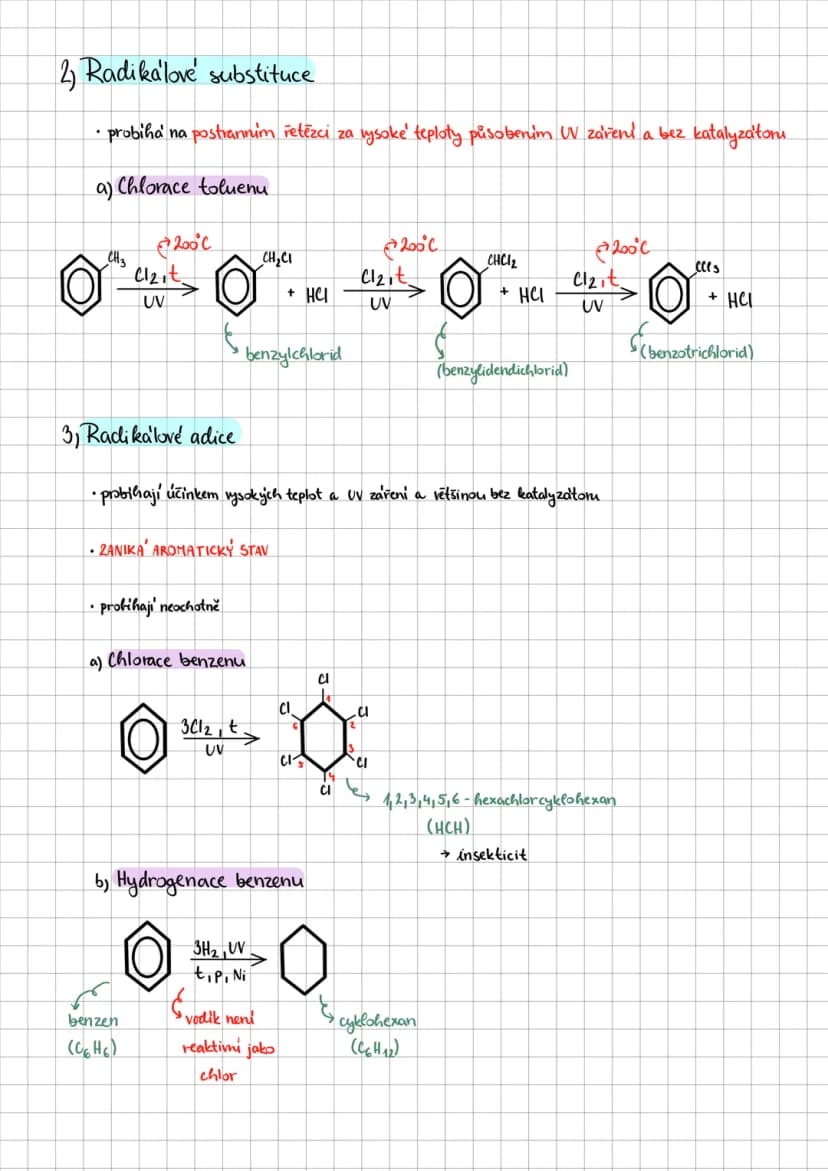 2) Radikálové substituce
• probíhá na postranním řetězci za vysoké teploty působením UV záření a bez katalyzátoru
a) Chlorace toluenu
200°C 200°C 200°C
CH3 Cl2, t UV CH2Cl + HCl Cl2, t UV CHCl2 + HCl Cl2, t UV CCl3 + HCl
benzylchlorid (benzylidendichlorid) (benzotrichlorid)
3) Radikálové adice
• probíhají účinkem vysokých teplot a UV záření a většinou bez katalyzátoru
• ZANIKÁ AROMATICKÝ STAV
• probíhají neochotně
a) Chlorace benzenu
Cl
Cl 1 Cl
3Cl2, t 6 2
UV 5 3
Cl 4 Cl
Cl
1,2,3,4,5,6 - hexachlorcyklohexan
(HCH)
→ insekticit
b) Hydrogenace benzenu
3H2, UV
t, P, Ni
benzen vodík není cyklohexan
(C6H6) reaktivní jako (C6H12)
chlor